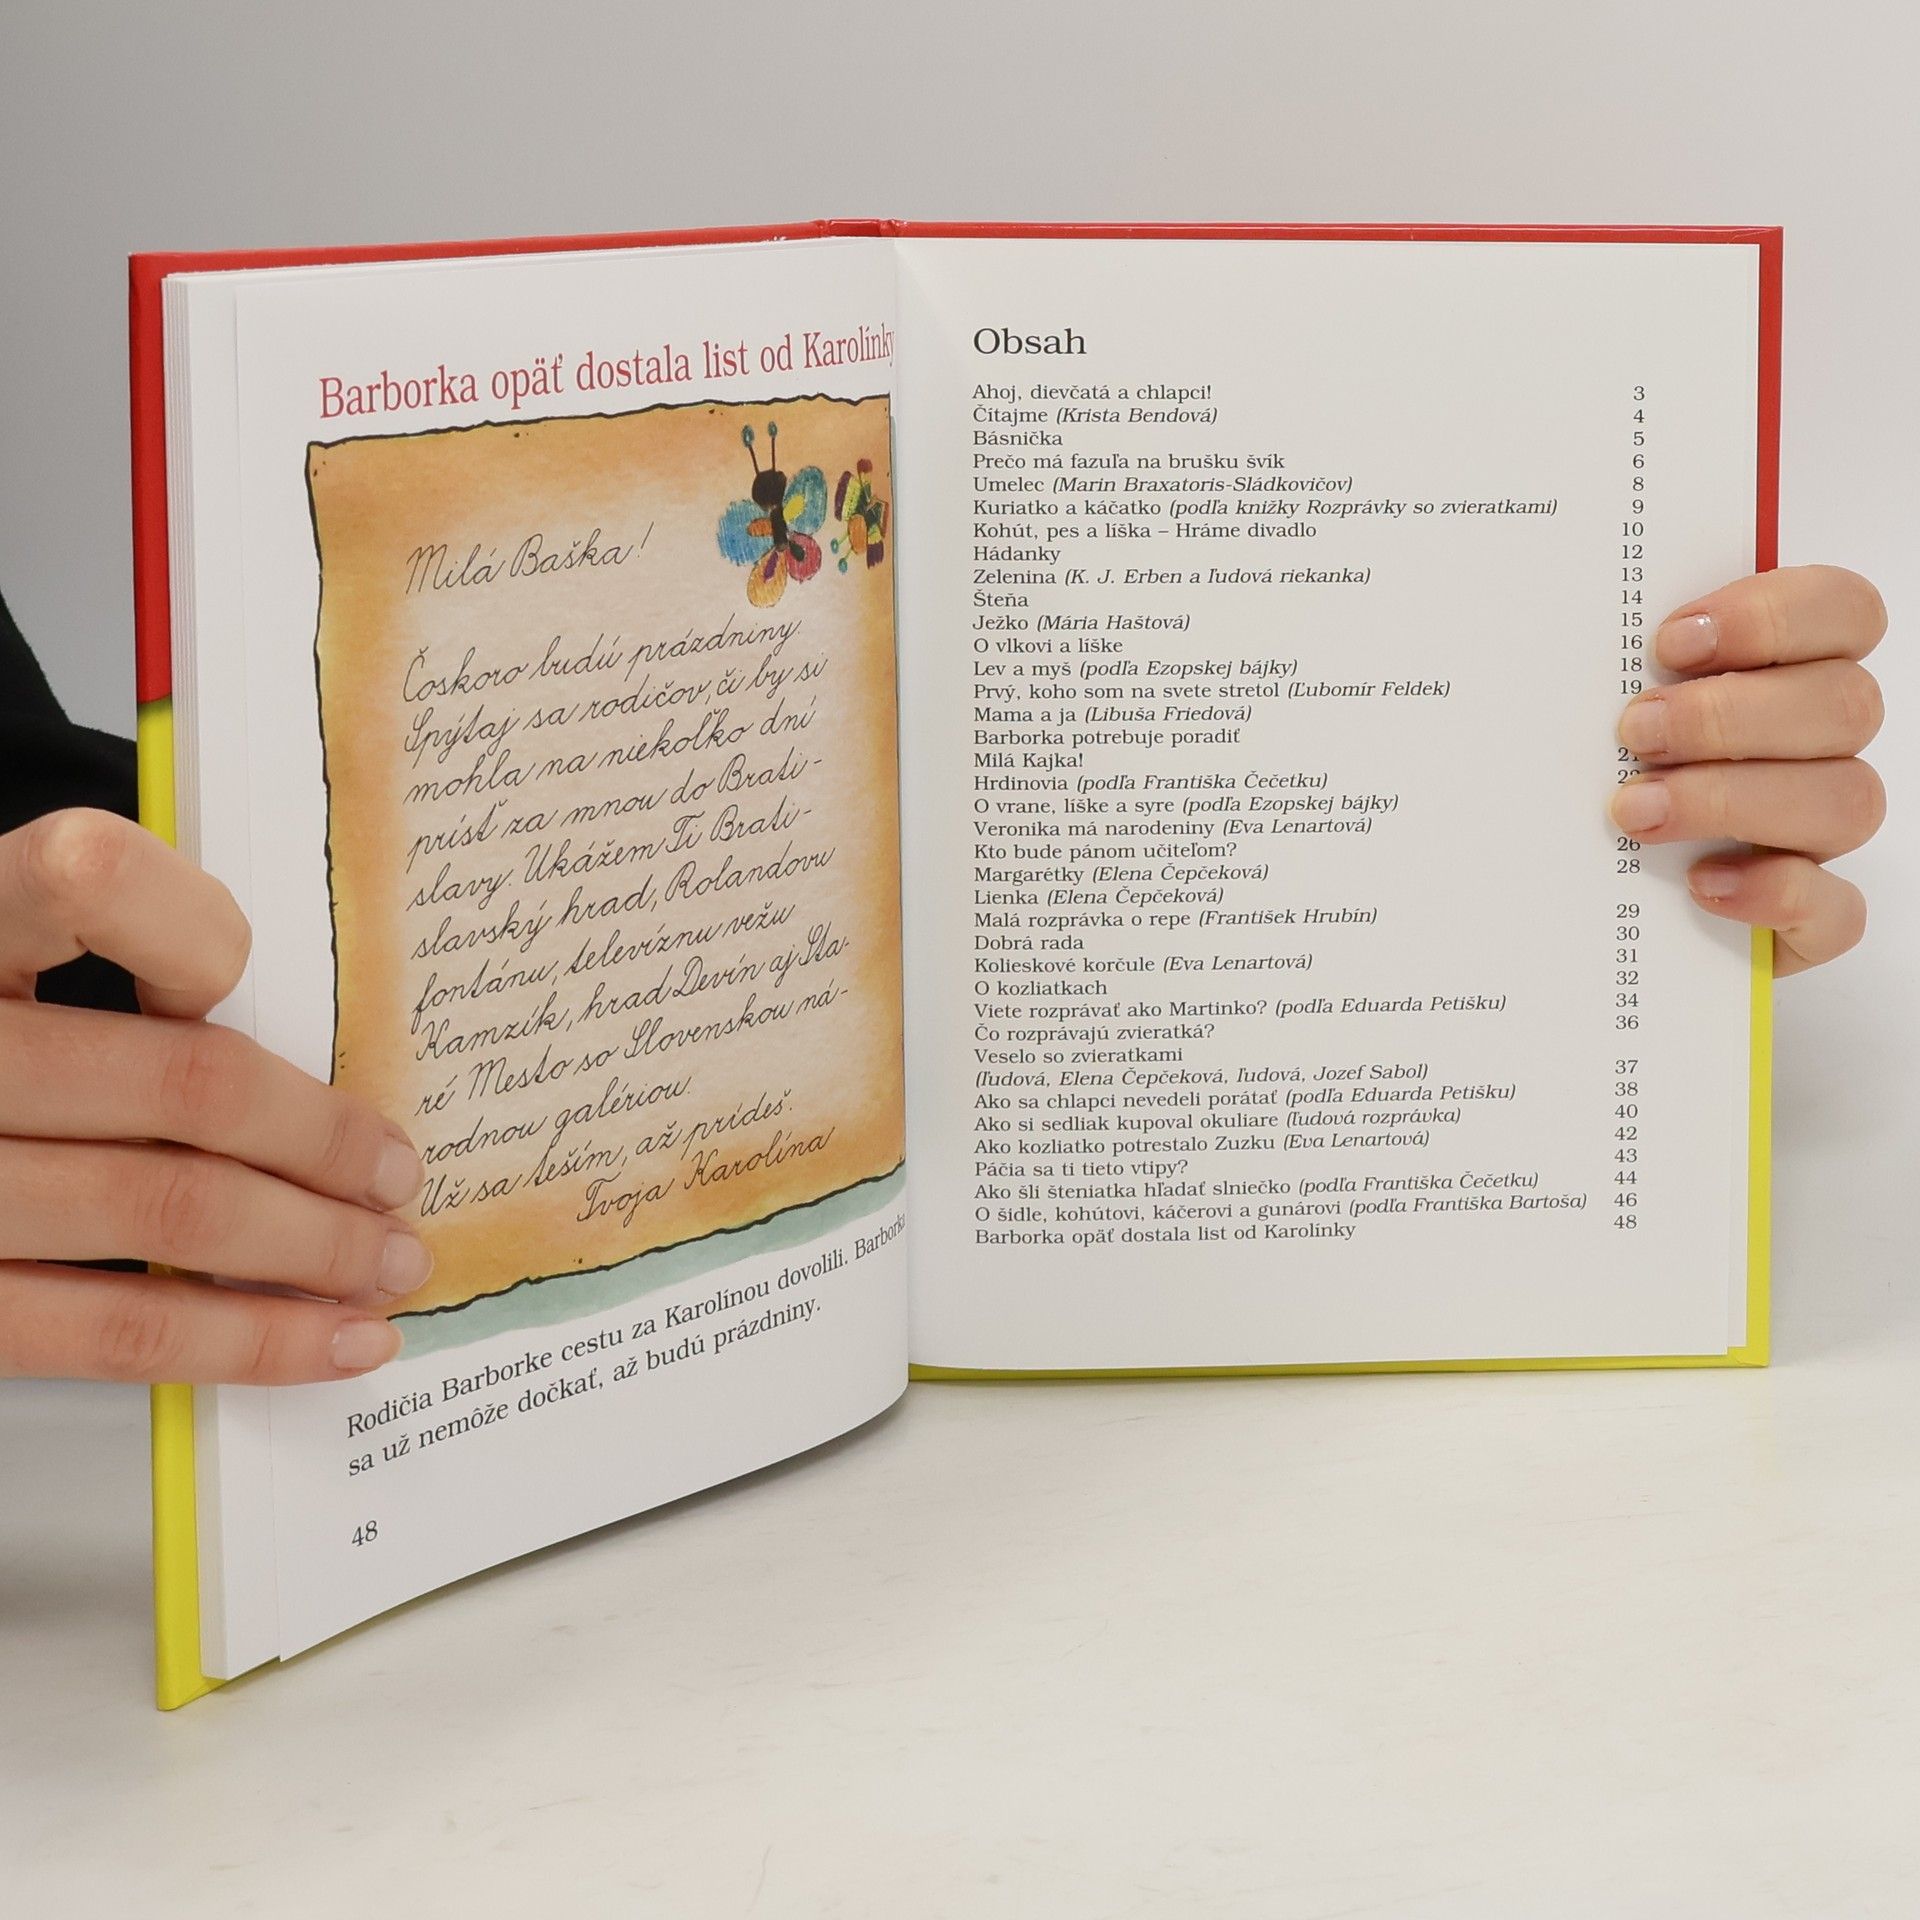 Barborka opäť dostala list od Karolínky
Milá Baška!
Čoskoro budú prázdniny.
Spýtaj sa rodičov, či by si
mohla na niekoľko dní
prísť za mnou do Brati-
slavy. Ukážem Ti Brati-
slavský hrad, Rolandovu
fontánu, televíznu vežu
Kamzík, hrad Devín aj Sta-
ré Mesto so Slovenskou ná-
rodnou galériou.
Už sa teším, až prídeš.
Tvoja Karolína
Rodičia Barborke cestu za Karolínou dovolili. Barborka
sa už nemôže dočkať, až budú prázdniny.
48
Obsah
Ahoj, dievčatá a chlapci! 3
Čítajme (Krista Bendová) 4
Básnička 5
Prečo má fazuľa na brušku švík 6
Umelec (Marin Braxatoris-Sládkovičov) 8
Kuriatko a káčatko (podľa knižky Rozprávky so zvieratkami) 9
Kohút, pes a líška – Hráme divadlo 10
Hádanky 12
Zelenina (K. J. Erben a ľudová riekanka) 13
Šteňa 14
Ježko (Mária Haštová) 15
O vlkovi a líške 16
Lev a myš (podľa Ezopskej bájky) 18
Prvý, koho som na svete stretol (Ľubomír Feldek) 19
Mama a ja (Libuša Friedová)
Barborka potrebuje poradiť
Milá Kajka! 21
Hrdinovia (podľa Františka Čečetku)
O vrane, líške a syre (podľa Ezopskej bájky)
Veronika má narodeniny (Eva Lenartová)
Kto bude pánom učiteľom? 26
Margarétky (Elena Čepčeková) 28
Lienka (Elena Čepčeková)
Malá rozprávka o repe (František Hrubín) 29
Dobrá rada 30
Kolieskové korčule (Eva Lenartová) 31
O kozliatkach 32
Viete rozprávať ako Martinko? (podľa Eduarda Petišku) 34
Čo rozprávajú zvieratká? 36
Veselo so zvieratkami
(ľudová, Elena Čepčeková, ľudová, Jozef Sabol) 37
Ako sa chlapci nevedeli porátať (podľa Eduarda Petišku) 38
Ako si sedliak kupoval okuliare (ľudová rozprávka) 40
Ako kozliatko potrestalo Zuzku (Eva Lenartová) 42
Páčia sa ti tieto vtipy? 43
Ako šli šteniatka hľadať slniečko (podľa Františka Čečetku) 44
O šidle, kohútovi, káčerovi a gunárovi (podľa Františka Bartoša) 46
Barborka opäť dostala list od Karolínky 48